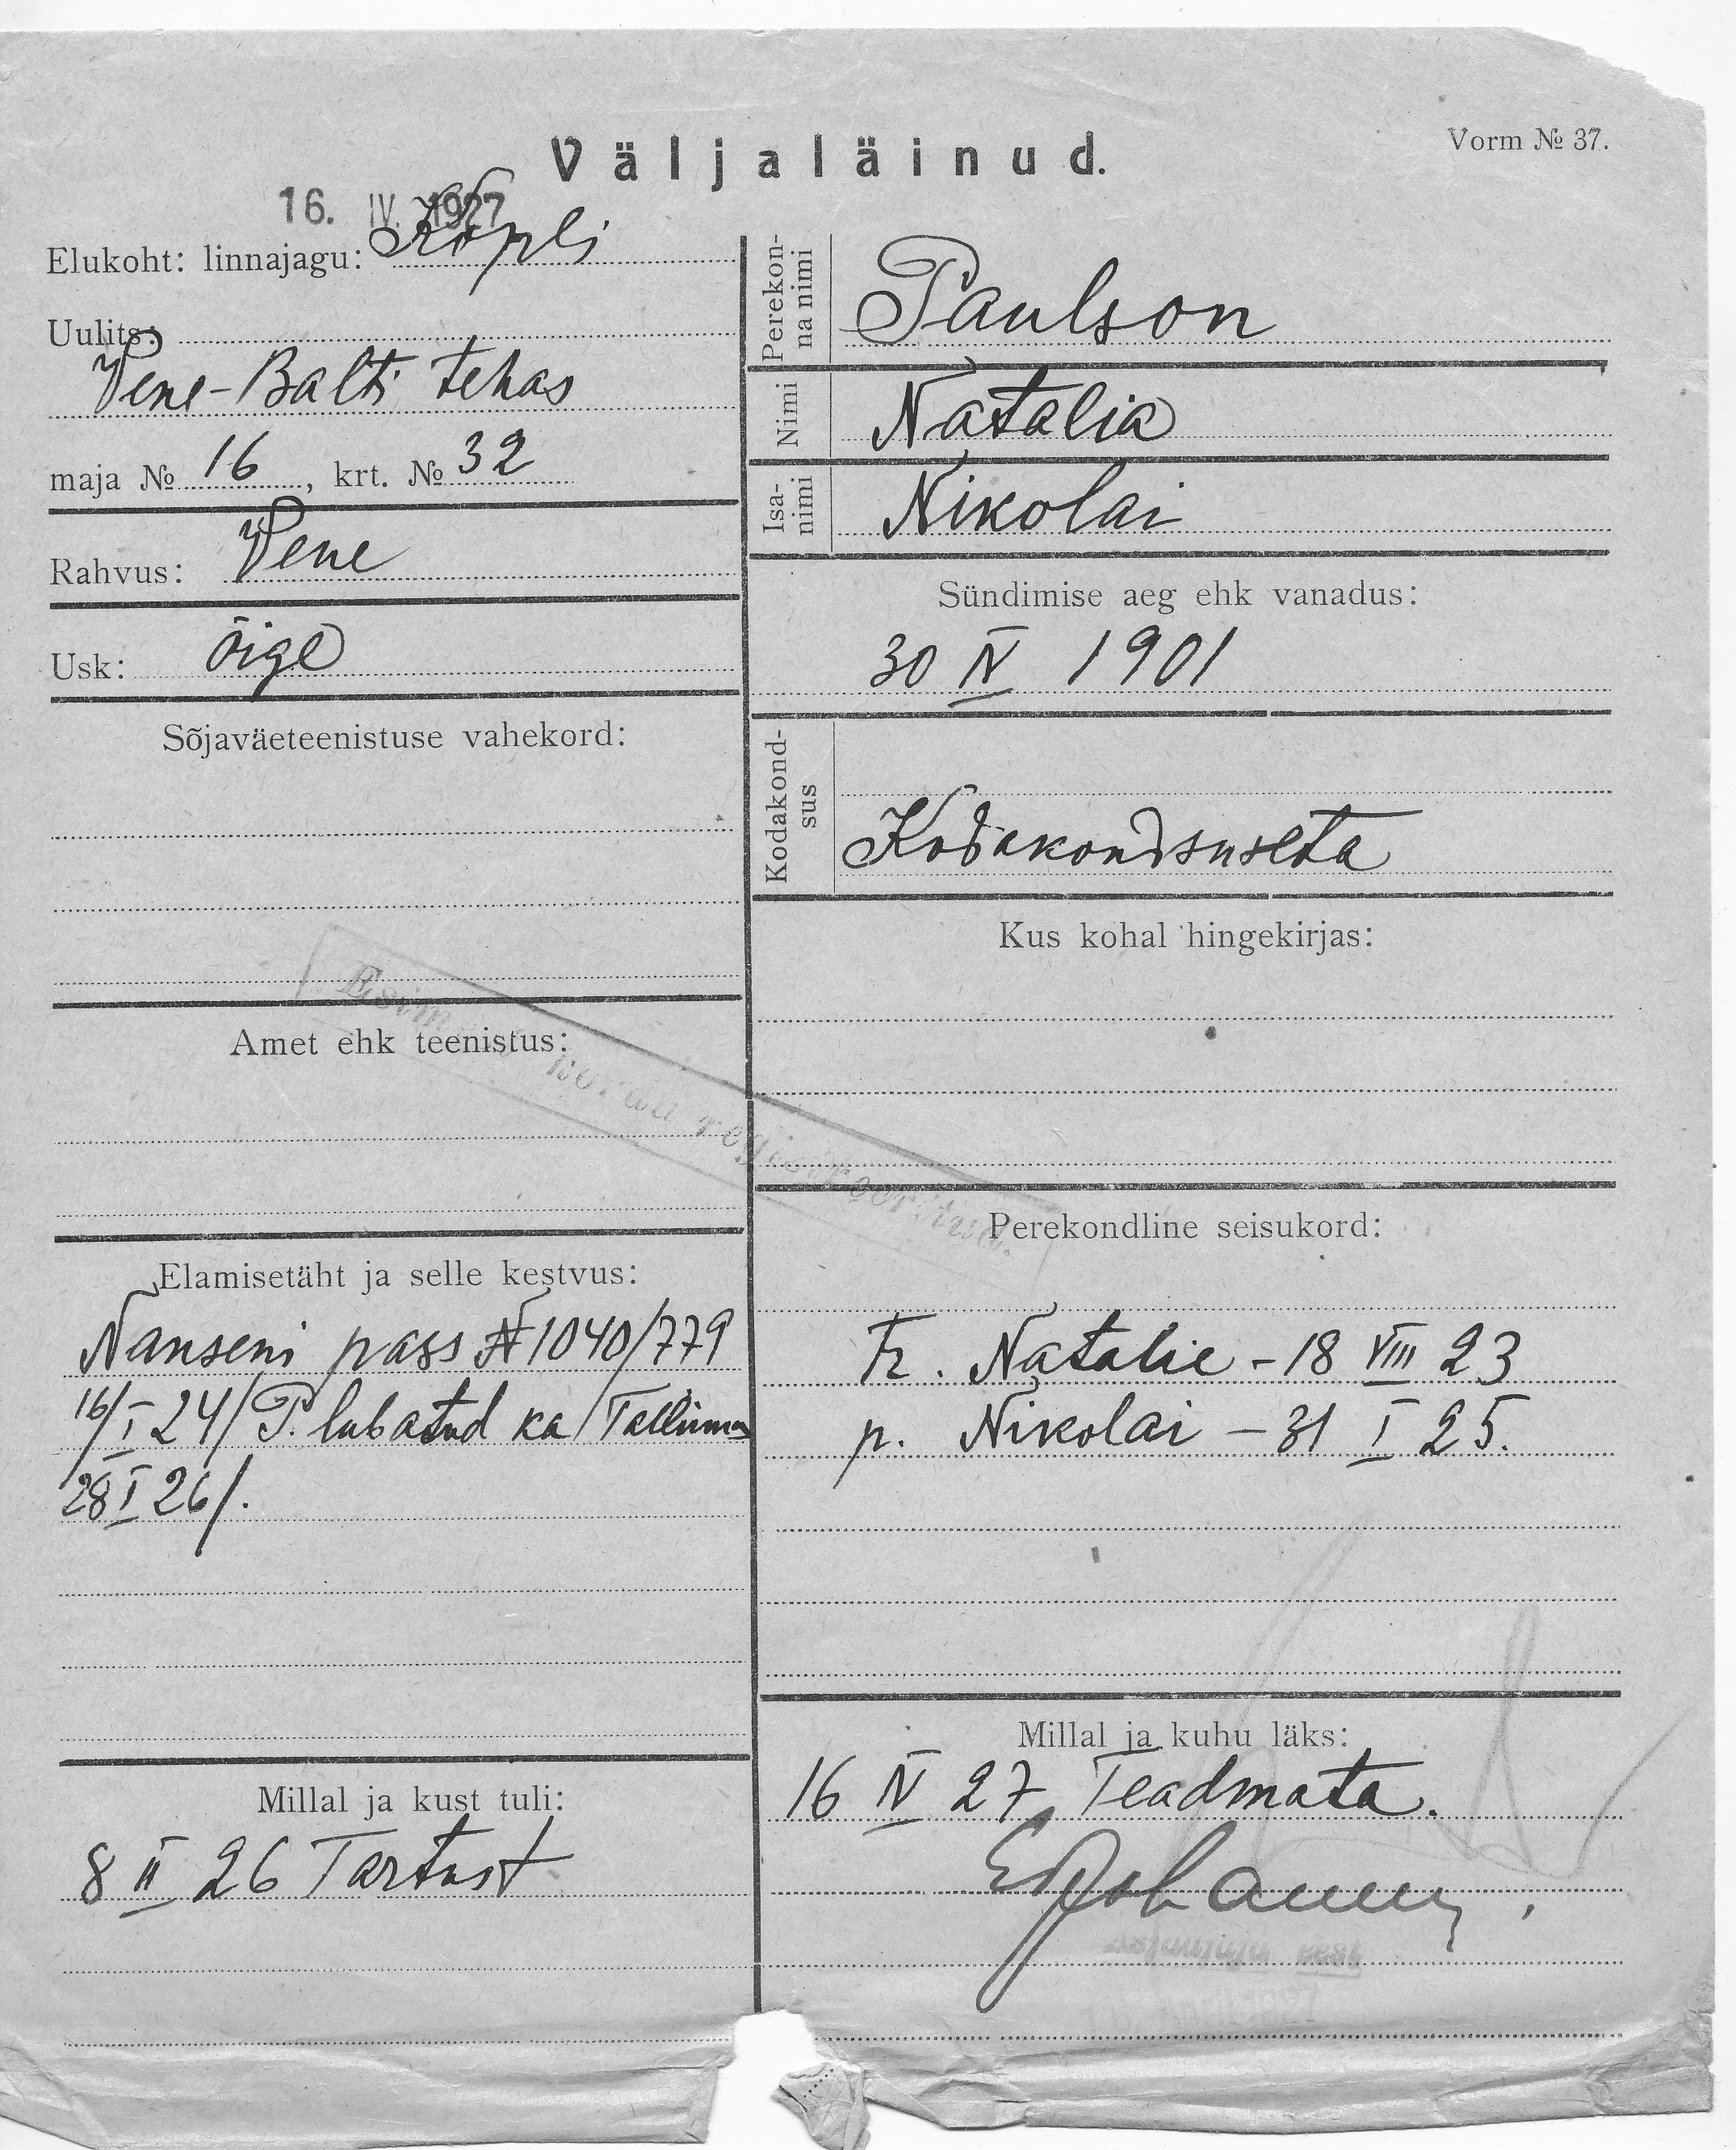 Väljaläinud.
Vorm № 37.
16. IV. 1927
Elukoht: linnajagu: Kopli
Uulits:
Vene-Balti tehas
maja № 16, krt. № 32
Rahvus: Vene
Usk: õige
Sõjaväeteenistuse vahekord:
Amet ehk teenistus:
Elamisetäht ja selle kestvus:
Nanseni pass № 1040/779
16/I 24/ P. lubatud ka Tallinna
28 I 26/.
Millal ja kust tuli:
8 II 26 Tartust
Perekon-
na nimi
Paulson
Nimi
Natalia
Isa-
nimi
Nikolai
Sündimise aeg ehk vanadus:
30 IV 1901
Kodakond-
sus
Kodakondsuseta
Kus kohal hingekirjas:
Esimest korda registreeritud.
Perekondline seisukord:
Natalie - 18 VIII 23
p. Nikolai - 31 I 25.
Millal ja kuhu läks:
16 IV 27 Teadmata.